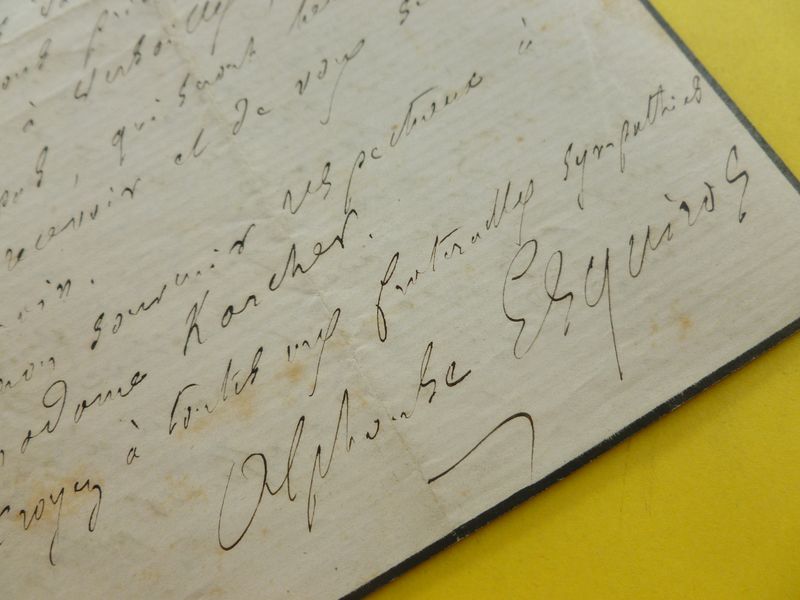 à Versailles,
, qui seront
recevoir et de vous
mon souvenir respectueux à
Madame Karcher.
Croyez à toutes mes fraternelles sympathies
Alphonse Esquiros